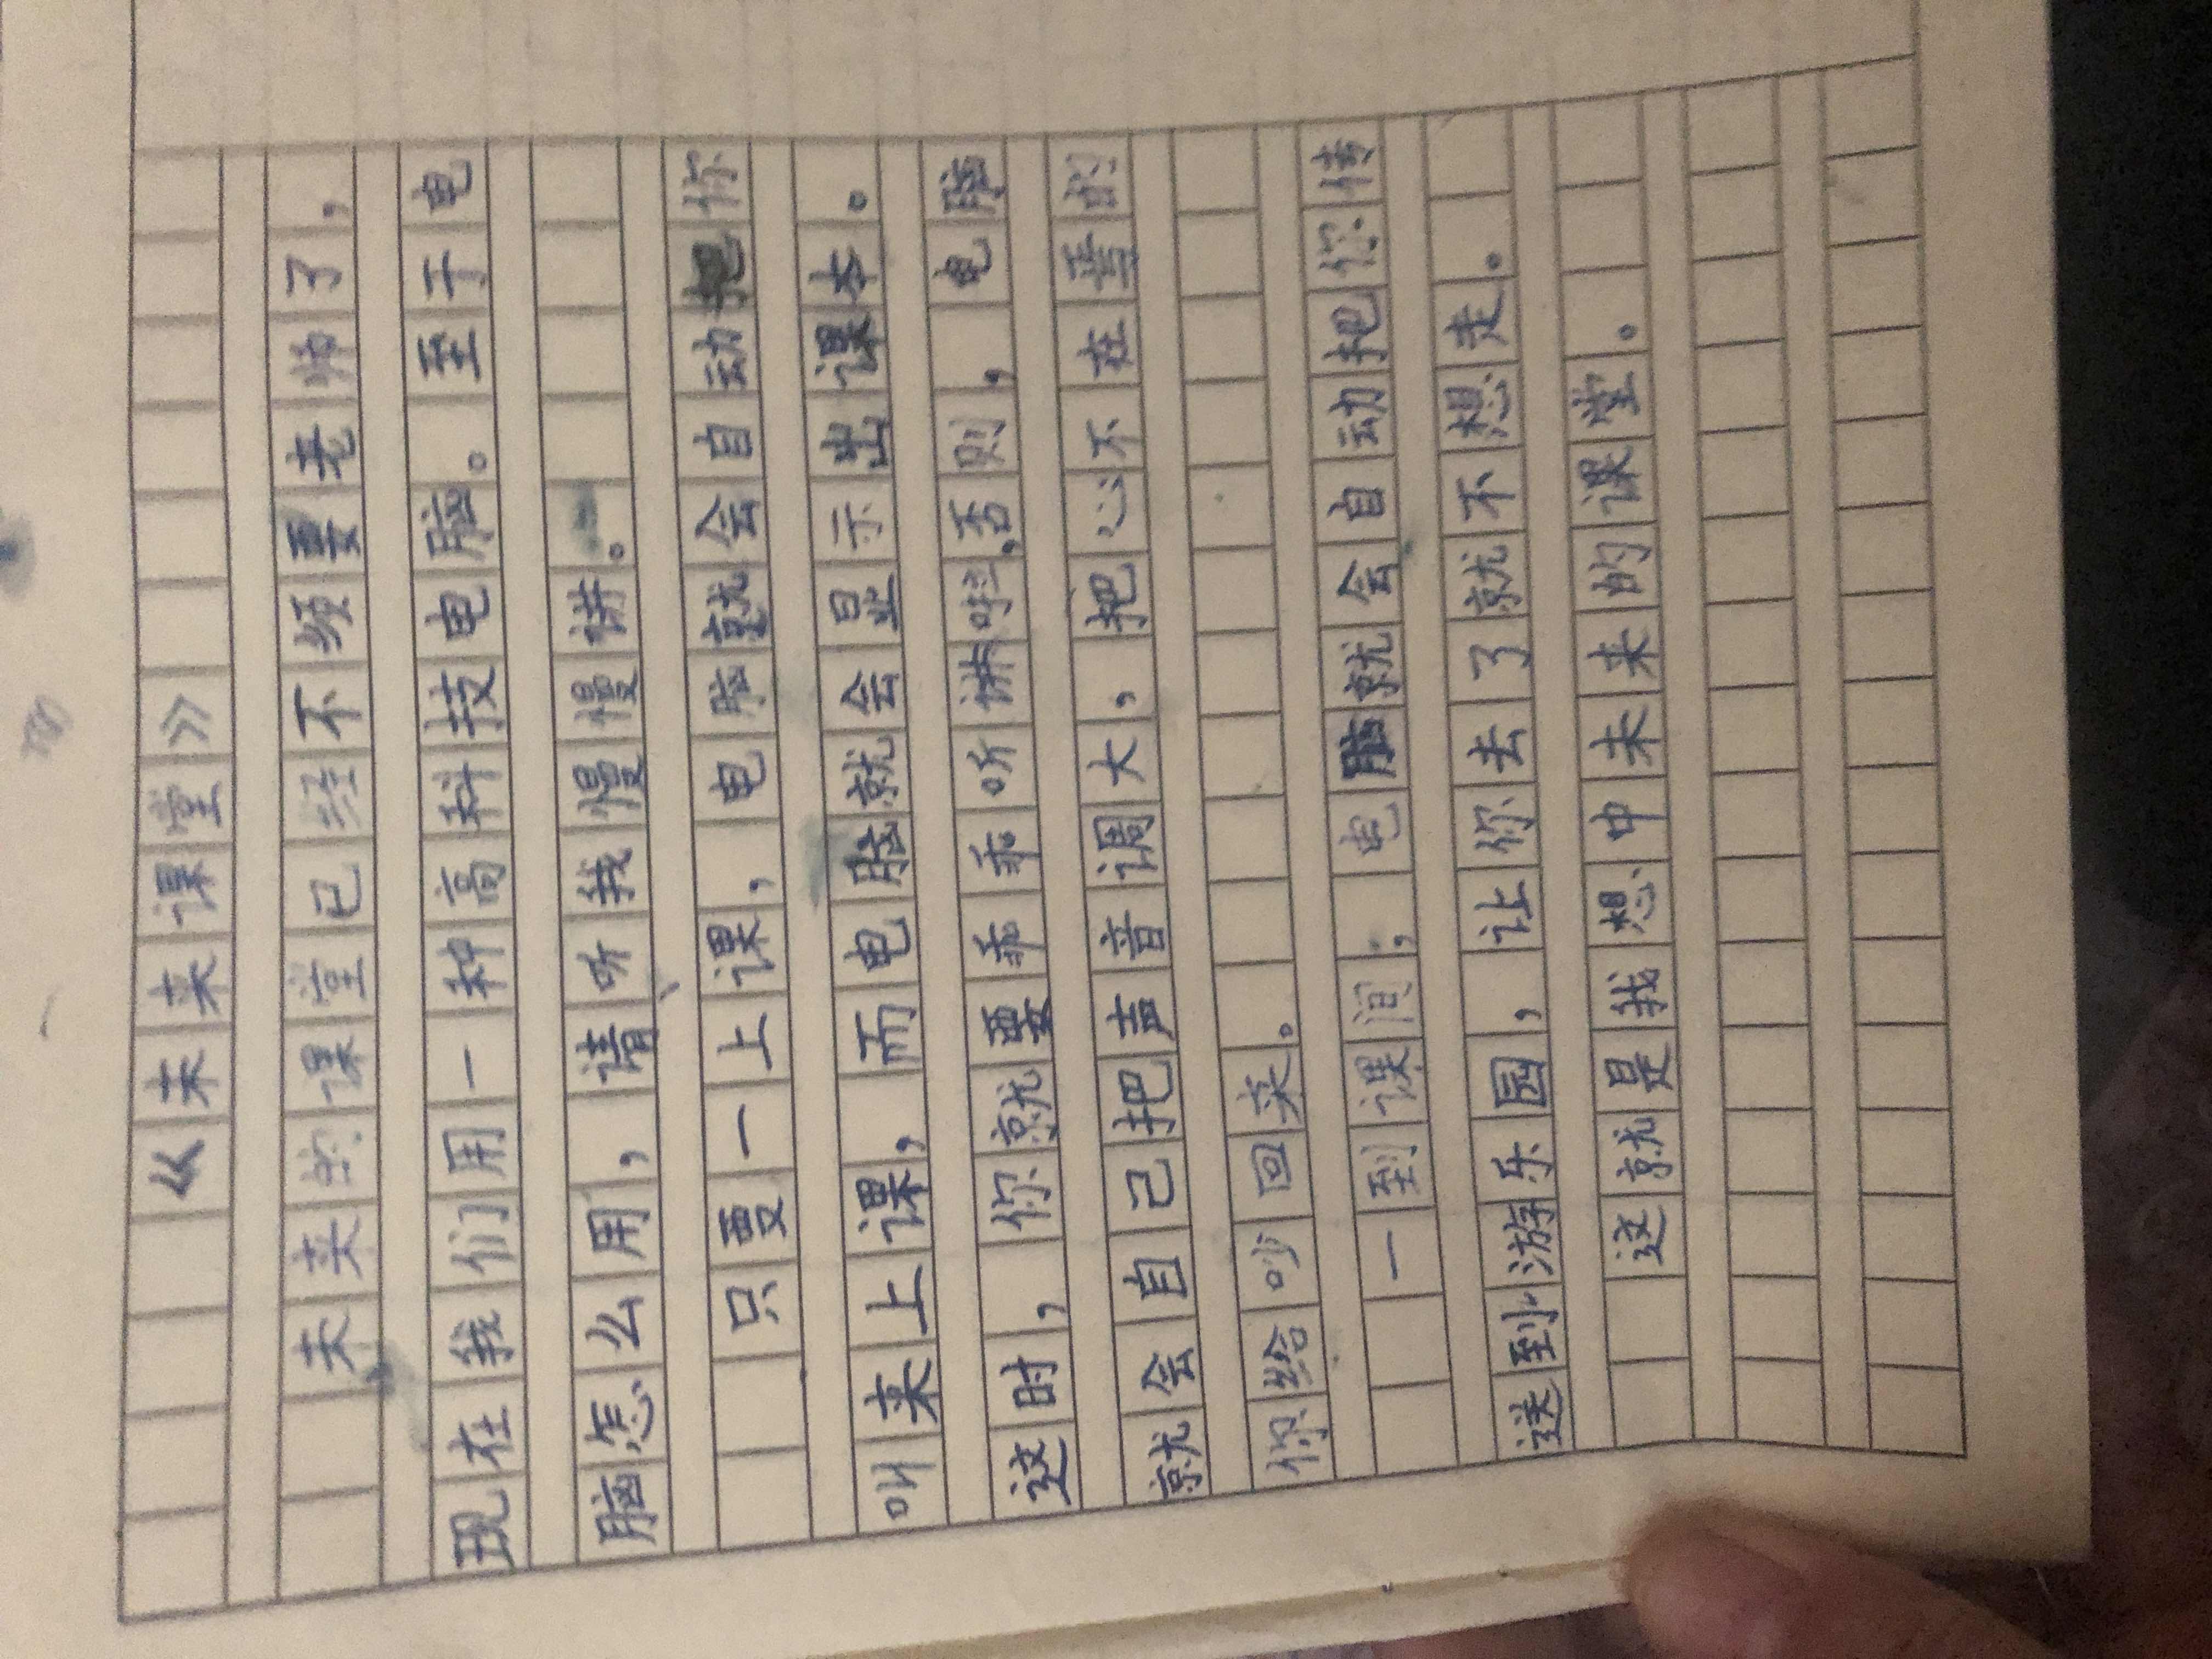 《未来课堂》
未来的课堂已经不须要老师了，
现在我们用一种高科技电脑。至于电
脑怎么用，请听我慢慢讲。
只要一上课，电脑就会自动把你
叫来上课，而电脑就会显示出课本。
这时，你就要乖乖听讲啦，否则，电脑
就会自己把声音调大，把心不在堂的
你给吵回来。
一到课间，电脑就会自动把你传
送到游乐园，让你去了就不想走。
这就是我想中未来的课堂。